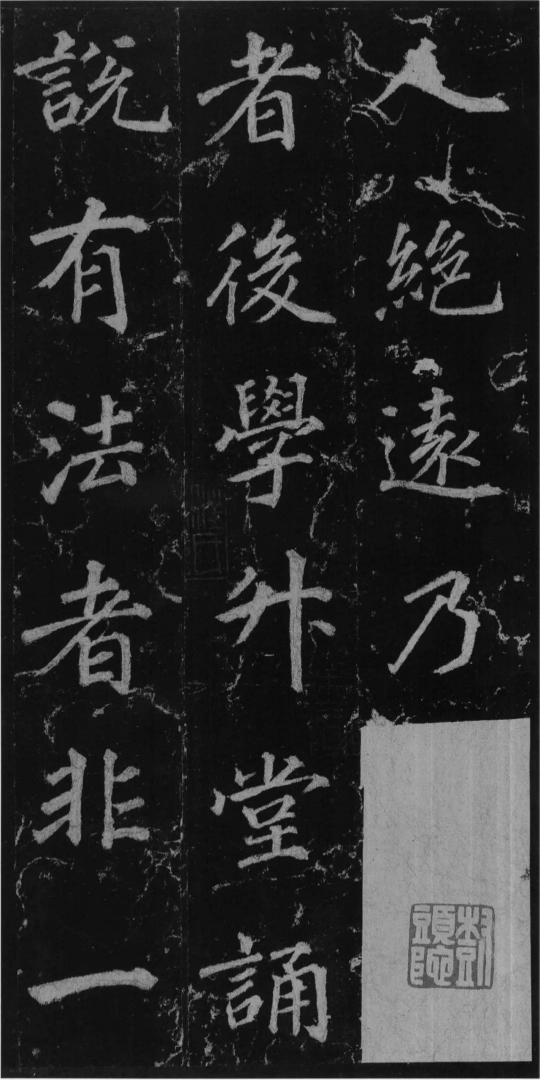 人絶遠乃
者後學升堂誦
説有法者非一